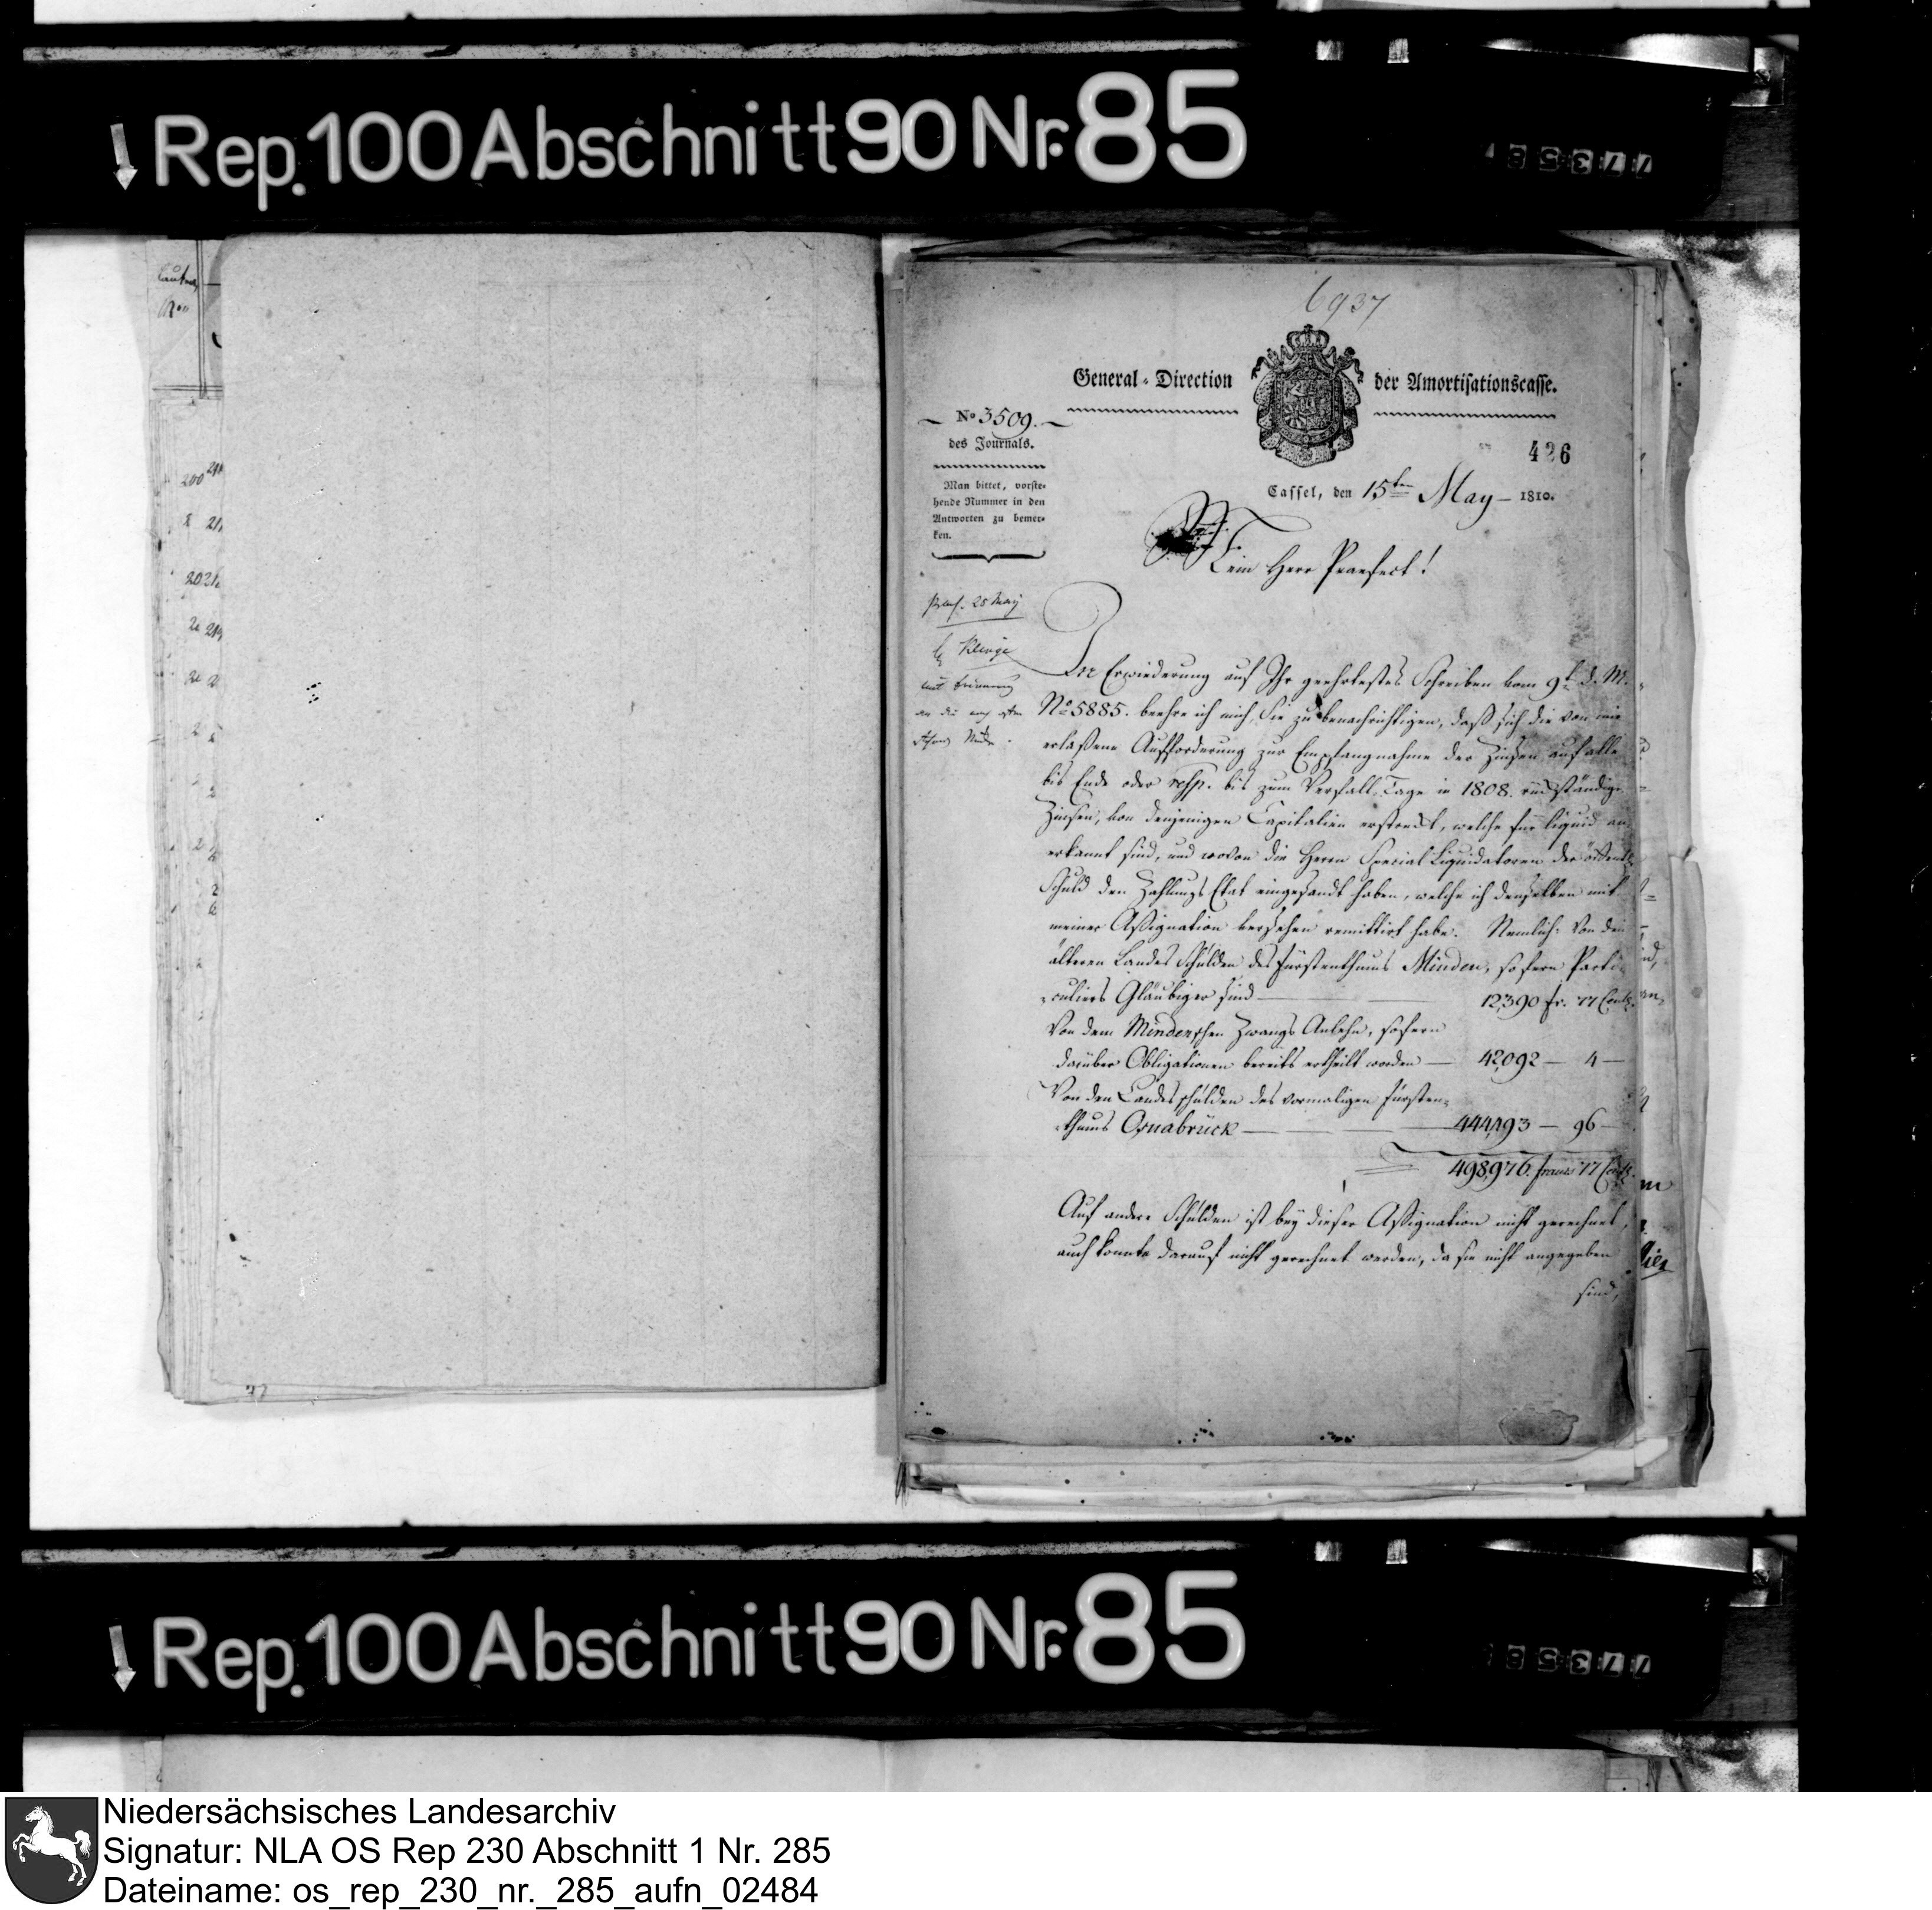 Rep. 100 Abschnitt 90 Nr. 85
6937
General-Direction der Amortisationscasse.
No 3509.
des Journals.
426
Man bittet, vorste-
hende Nummer in den
Antworten zu bemer-
ken.
Cassel, den 15ten May 1810.
Mein Herr Praefect!
praes. 25 May
Klinge
mit Erinnerung
In Erwiederung auf Ihr geehrtestes Schreiben vom 9t d. M.
No 5885. beehre ich mich, Sie zu benachrichtigen, daß sich die von mir
erlaßene Aufforderung zur Empfangnahme der Zinsen auf alle
bis Ende oder resp. bis zum Verfall Tage in 1808. rückständige
Zinsen, von denjenigen Capitalien erstreckt, welche für liquid an-
erkannt sind, und wovon die Herrn Special Liquidatoren der öffentl.
Schuld den Zahlungs Etat eingesandt haben, welche ich denselben mit
meiner Assignation versehen remittirt habe. Nemlich: Von den
älteren Landes Schulden des Fürstenthums Minden, sofern Parti-
-culiers Gläubiger sind — 12,390 fr. 77 Cent.
Von dem Mindenschen Zwangs Anlehn, sofern
darüber Obligationen bereits ertheilt worden — 42,092 — 4 —
Von den Landesschulden des vormaligen Fürsten-
-thums Osnabrück — 444,493 — 96
498,976. francs 77 Cent.
Auf andere Schulden ist bey dieser Assignation nicht gerechnet,
auch konnte darauf nicht gerechnet werden, da sie nicht angegeben
sind,
Rep. 100 Abschnitt 90 Nr. 85
Niedersächsisches Landesarchiv
Signatur: NLA OS Rep 230 Abschnitt 1 Nr. 285
Dateiname: os_rep_230_nr._285_aufn_02484